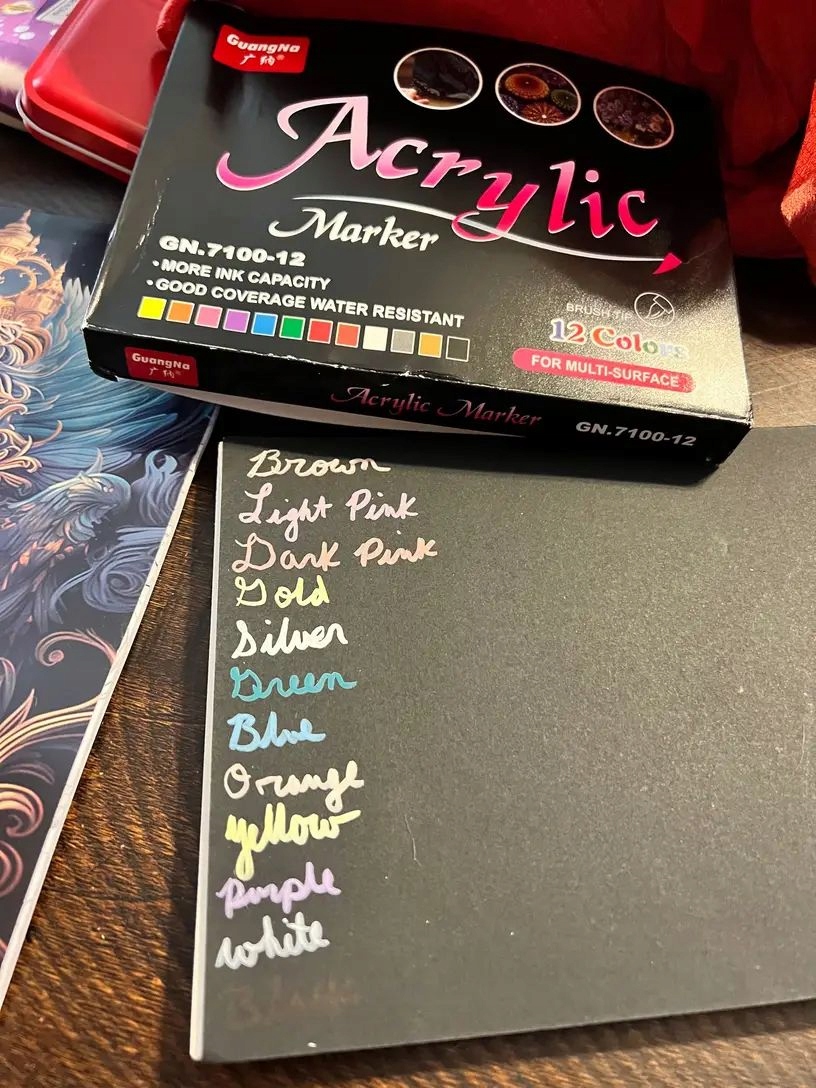 GuangNa
广纳®
Acrylic
Marker
GN.7100-12
•MORE INK CAPACITY
•GOOD COVERAGE WATER RESISTANT
BRUSH TIP
12 Colors
FOR MULTI-SURFACE
GuangNa
广纳®
Acrylic Marker
GN.7100-12
Brown
Light Pink
Dark Pink
Gold
Silver
Green
Blue
Orange
yellow
Purple
white
Black